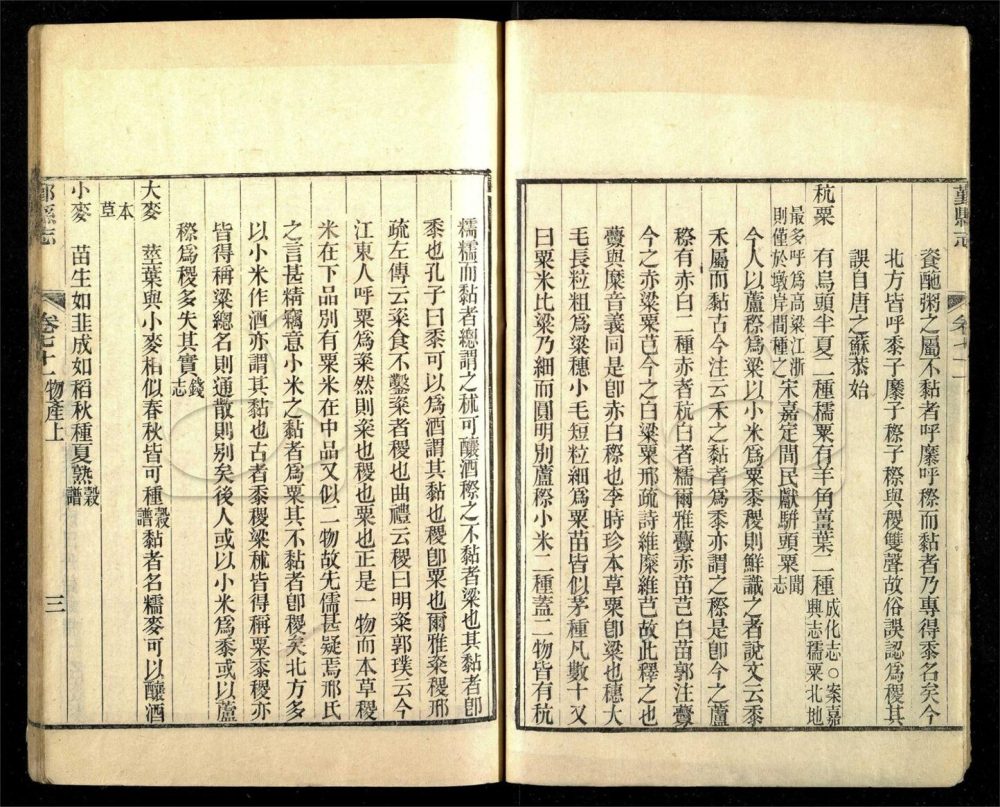 鄞縣志
卷七十一
餈酏粥之屬不黏者呼穈呼穄而黏者乃專得黍名矣今
北方皆呼黍子穈子穄子穄與稷雙聲故俗誤認爲稷其
誤自唐之蘇恭始
秔粟 有烏頭半夏二種糯粟有羊角薑葉二種成化志○案嘉興志穤粟北地
最多呼爲高粱江浙則僅於墩岸間種之宋嘉定間民獻駢頭粟聞志
今人以蘆穄爲粱以小米爲粟黍稷則鮮識之者說文云黍
禾屬而黏古今注云禾之黏者爲黍亦謂之穄是卽今之蘆
穄有赤白二種赤者秔白者糯爾雅虋赤苗芑白苗郭注虋
今之赤粱粟芑今之白粱粟邢疏詩維穈維芑故此釋之也
虋與穈音義同是卽赤白穄也李時珍本草粟卽粱也穗大
毛長粒粗爲粱穗小毛短粒細爲粟苗皆似茅種凡數十又
曰粟米比粱乃細而圓明別蘆穄小米二種蓋二物皆有秔
糯糯而黏者總謂之秫可釀酒穄之不黏者粱也其黏者卽
黍也孔子曰黍可以爲酒謂其黏也稷卽粟也爾雅粢稷邢
疏左傳云粢食不鑿粢者稷也曲禮云稷曰明粢郭璞云今
江東人呼粟爲粢然則粢也稷也粟也正是一物而本草稷
米在下品別有粟米在中品又似二物故先儒甚疑焉邢氏
之言甚精竊意小米之黏者爲粟其不黏者卽稷矣北方多
以小米作酒亦謂其黏也古者黍稷粱秫皆得稱粟黍稷亦
皆得稱粱總名則通散則別矣後人或以小米爲黍或以蘆
穄爲稷多失其實錢志
大麥 莖葉與小麥相似春秋皆可種穀譜黏者名糯麥可以釀酒
本草
小麥 苗生如韭成如稻秋種夏熟穀譜
鄞縣志
卷七十一 物產上
三